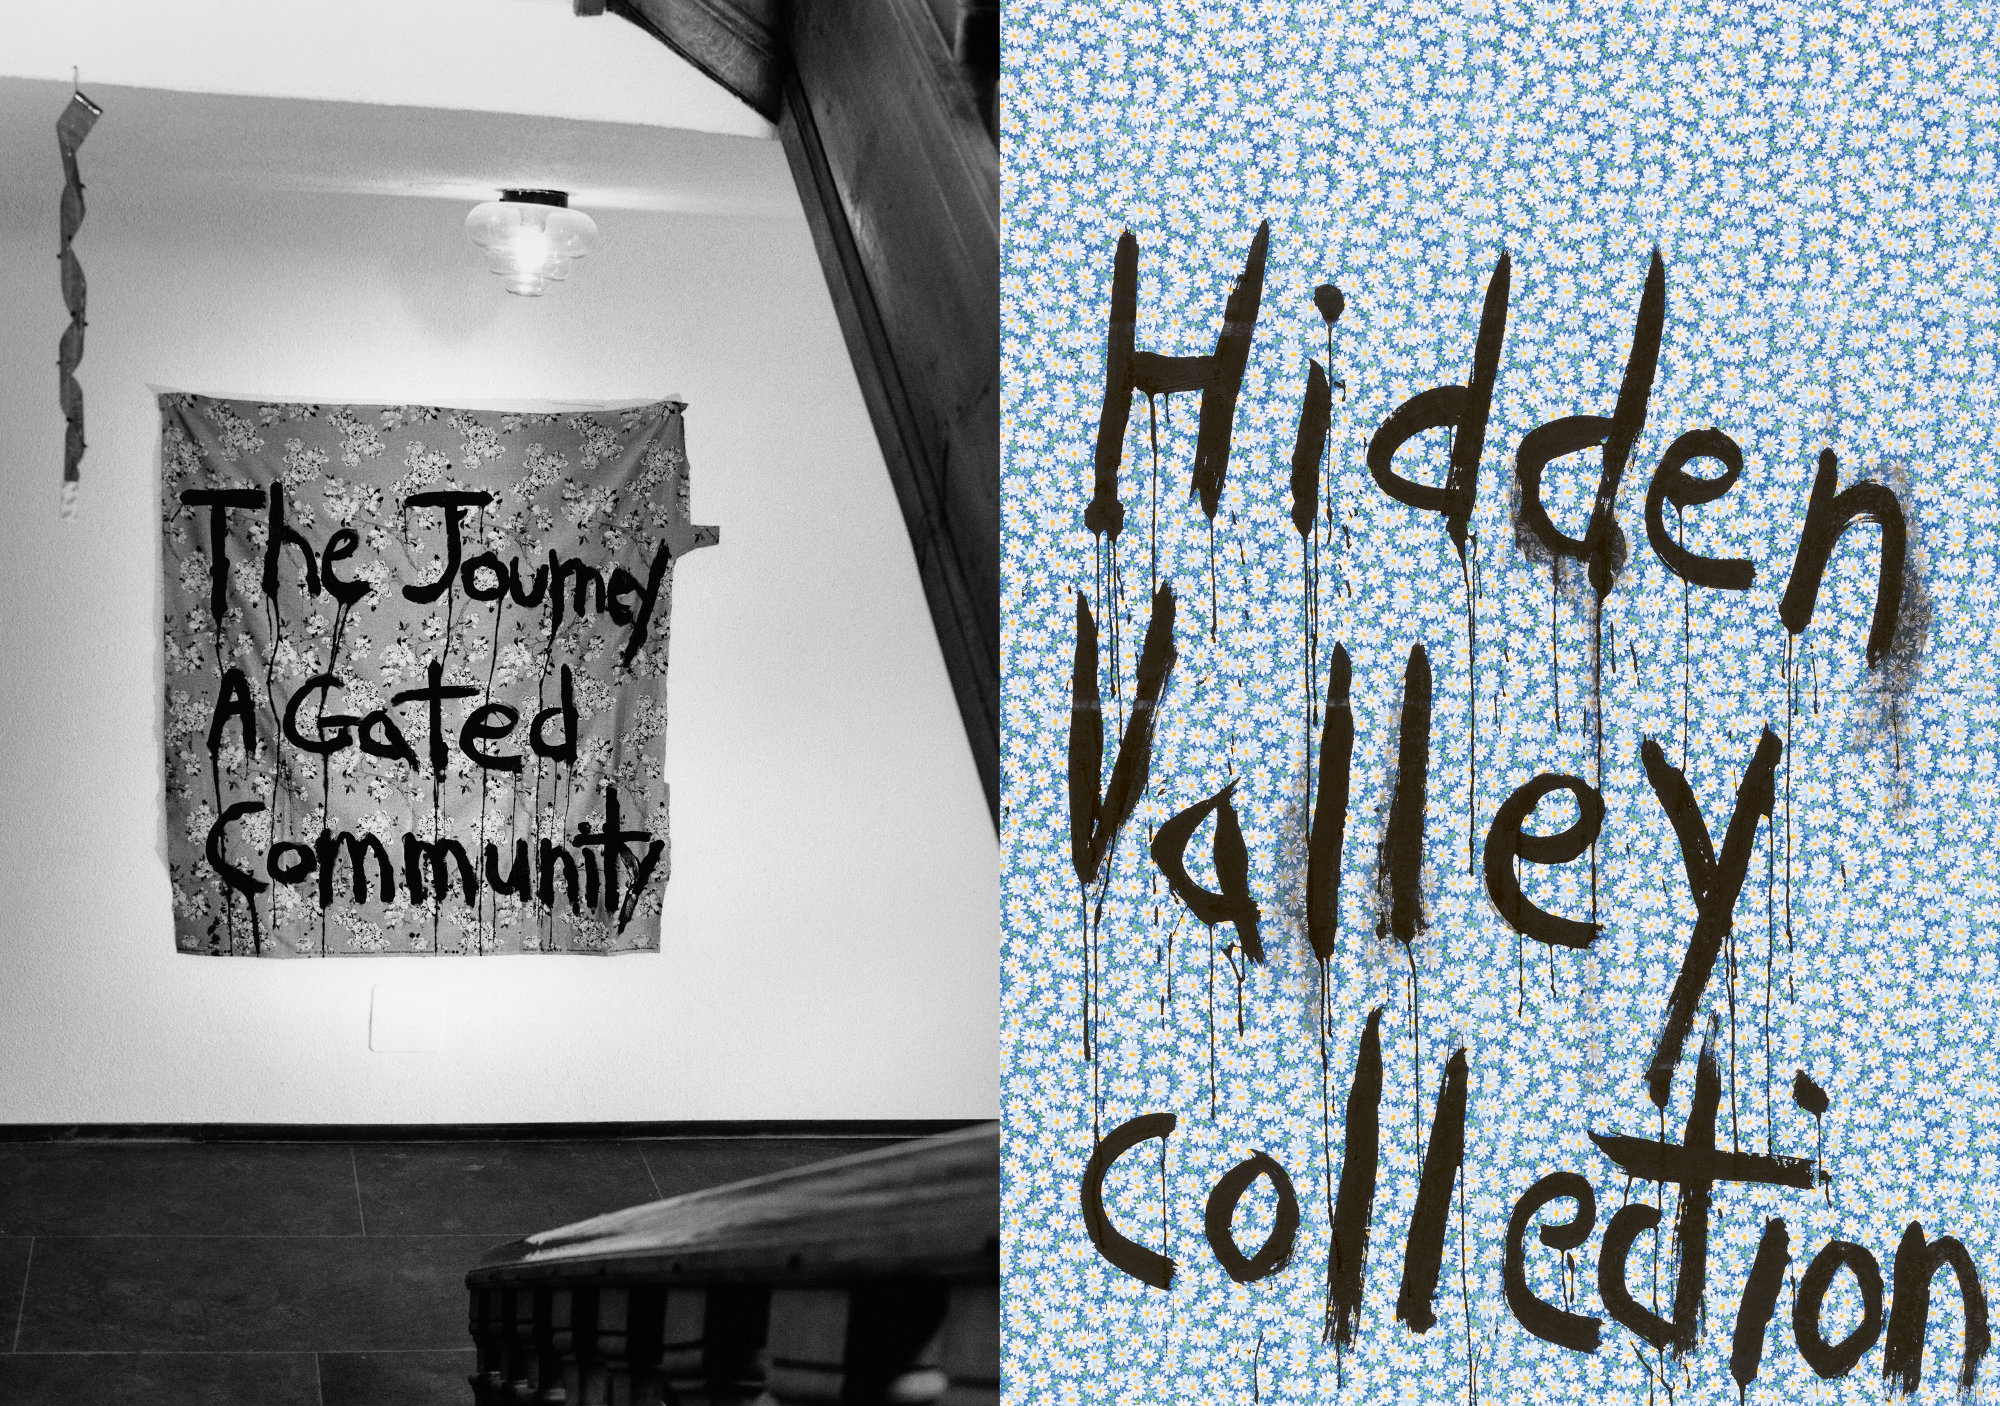 The Journey
A Gated
Community
Hidden
Valley
collection